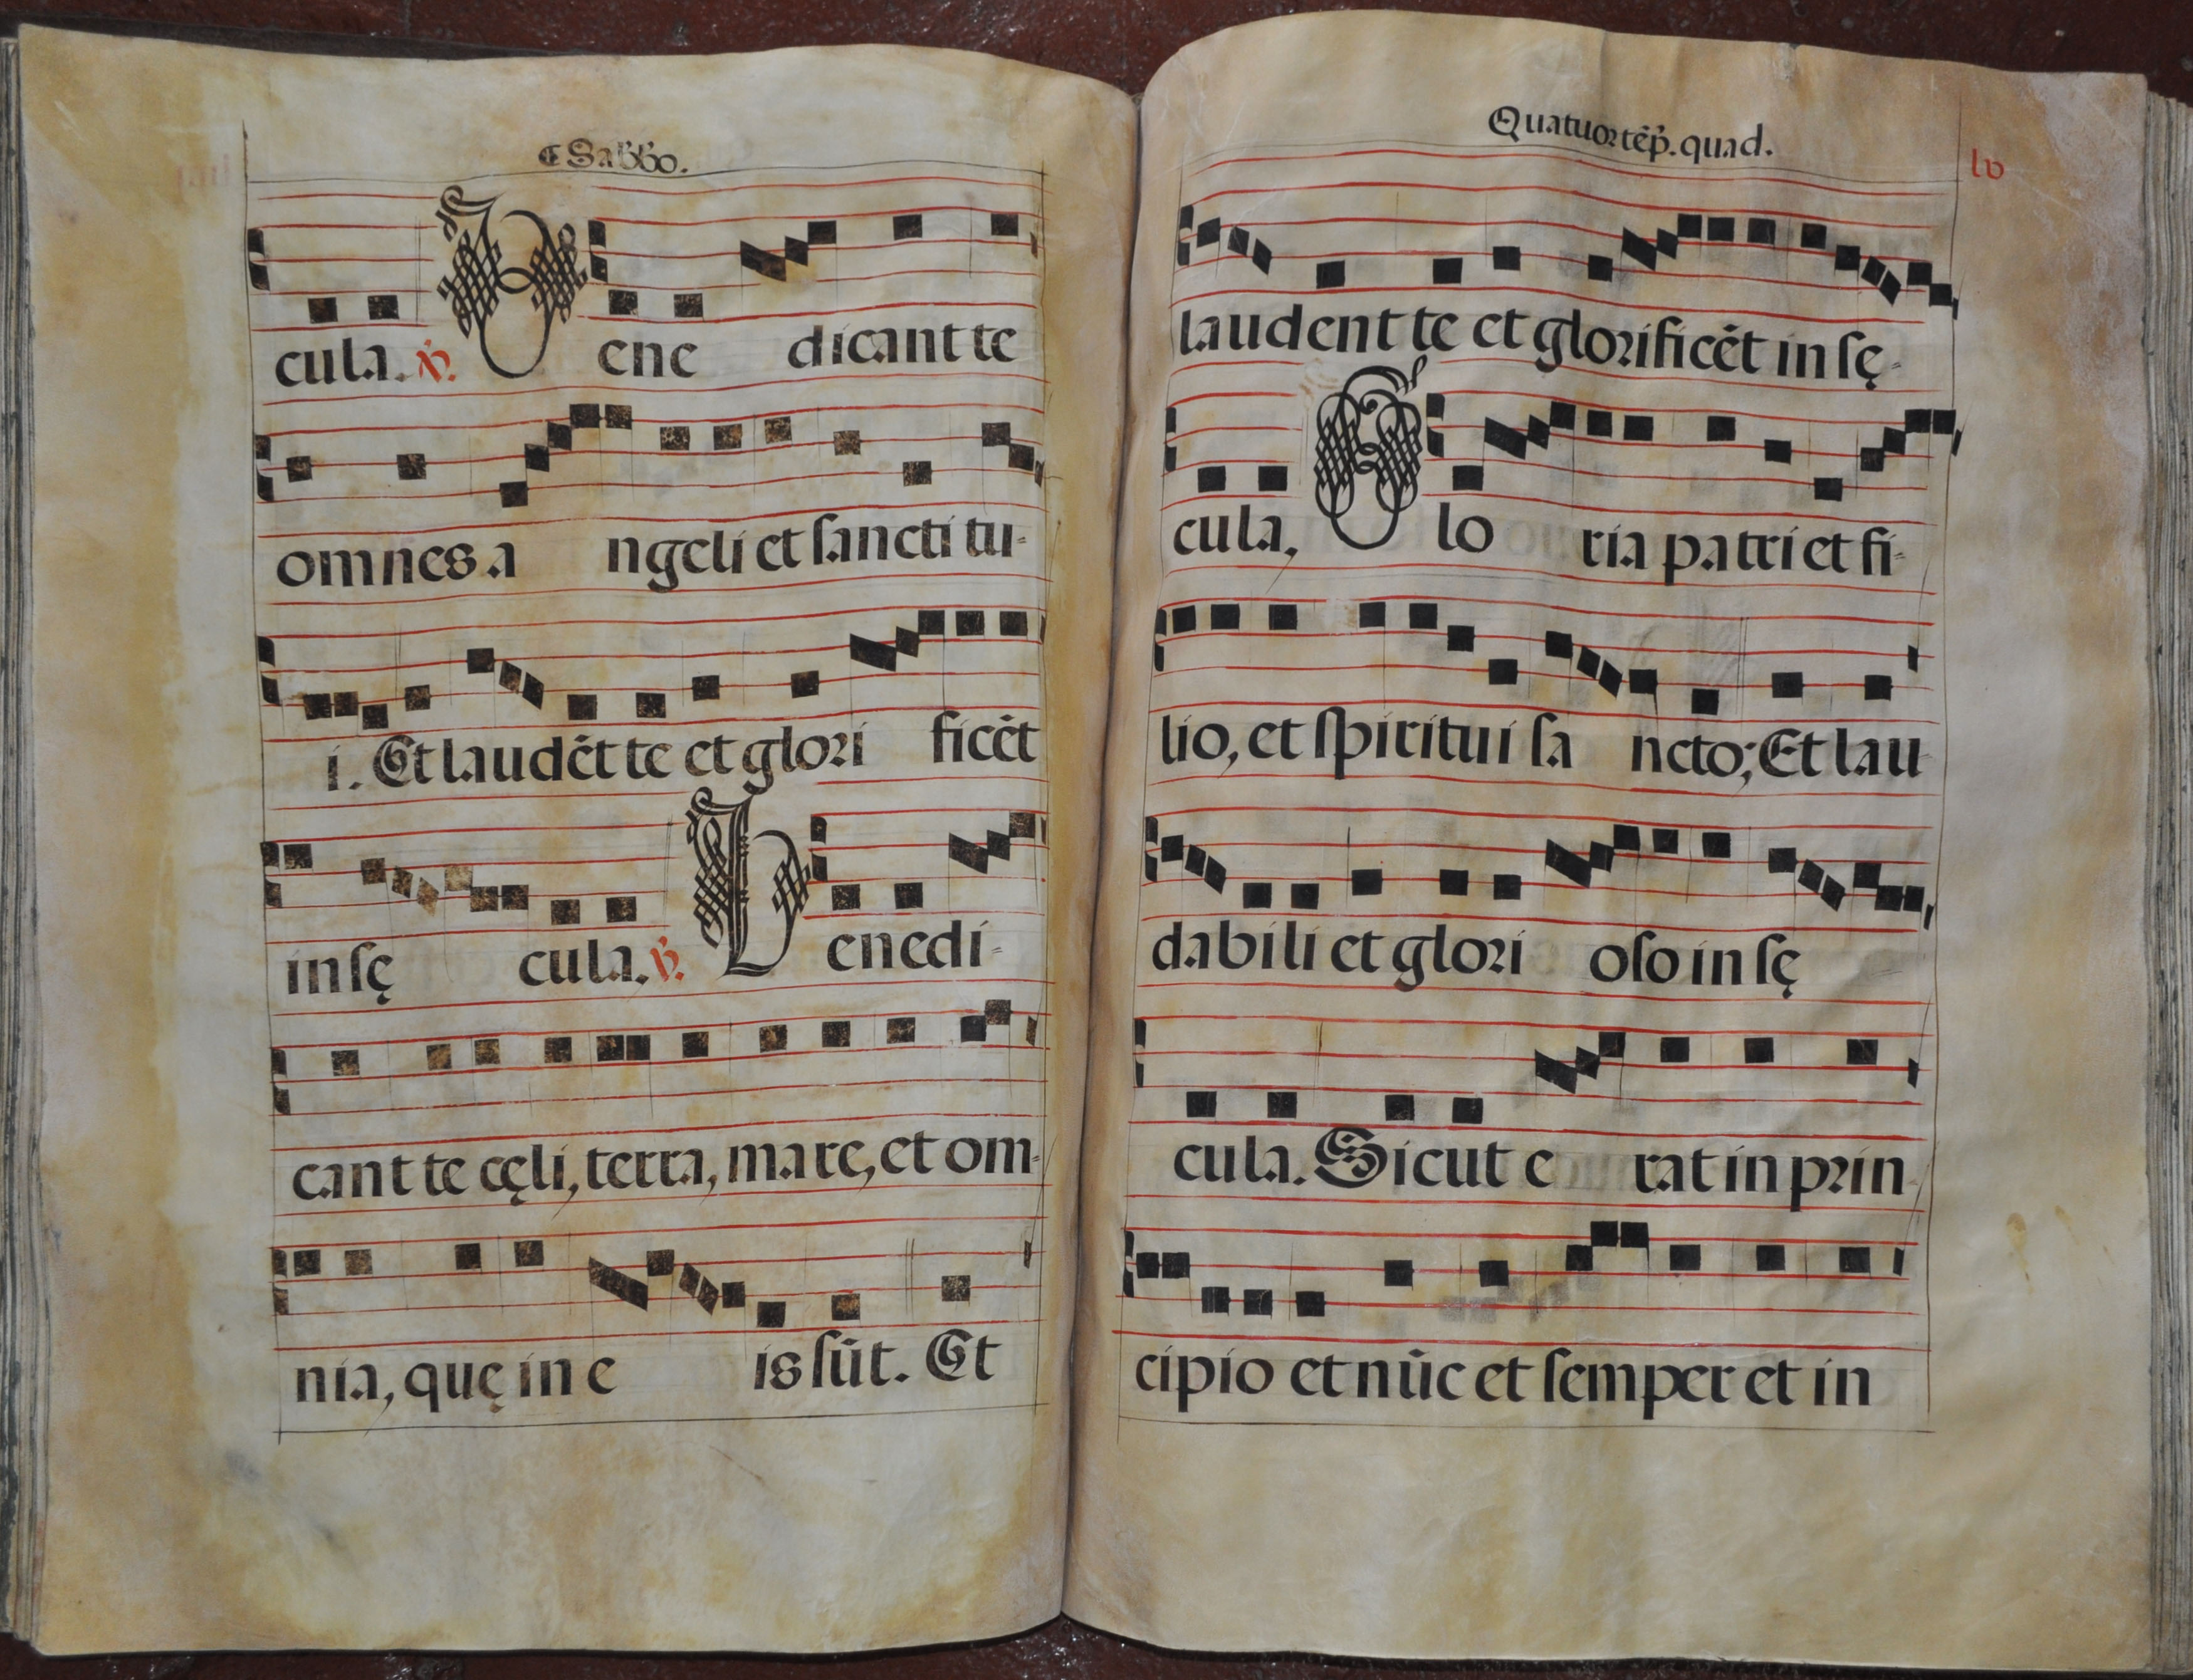 Sabbo.
cula. ℣. Bene dicant te
omnes a ngeli et sancti tu-
i. Et laudēt te et glori ficēt
in sę cula. ℣. Benedi-
cant te cęli, terra, mare, et om-
nia, quę in e is sūt. Et
Quatuor tēp. quad.
lv
laudent te et glorificēt in sę-
cula, Glo ria patri et fi-
lio, et spiritui sa ncto; Et lau
dabili et glori oso in sę
cula. Sicut e rat in prin-
cipio et nūc et semper et in